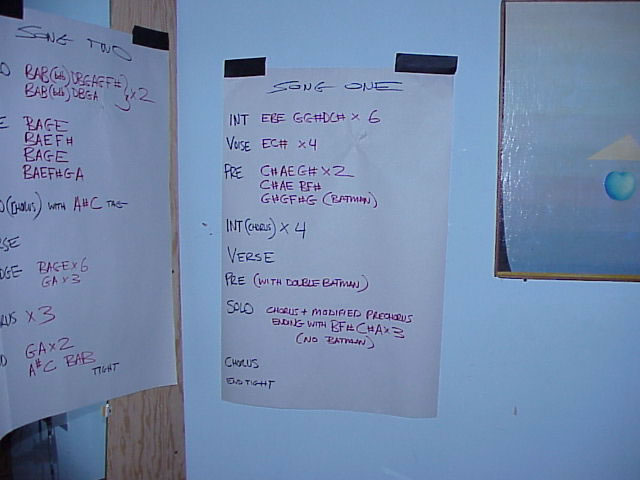 SONG TWO
BAB(hold) DBGAGF# } x2
BAB(hold) DBGA
BAGE
BAEF#
BAGE
BAEF#GA
(CHORUS) WITH A#C TAG
BAGE x 6
GA x 3
x 3
GA x 2
A#C BAB TIGHT
SONG ONE
INT EBE GG#DC# x 6
VERSE EC# x 4
PRE C#AEG# x 2
C#AE BF#
G#GF#G (BATMAN)
INT (CHORUS) x 4
VERSE
PRE (WITH DOUBLE BATMAN)
SOLO CHORUS + MODIFIED PRECHORUS
ENDING WITH BF#C#A x 3
(NO BATMAN)
CHORUS
END TIGHT